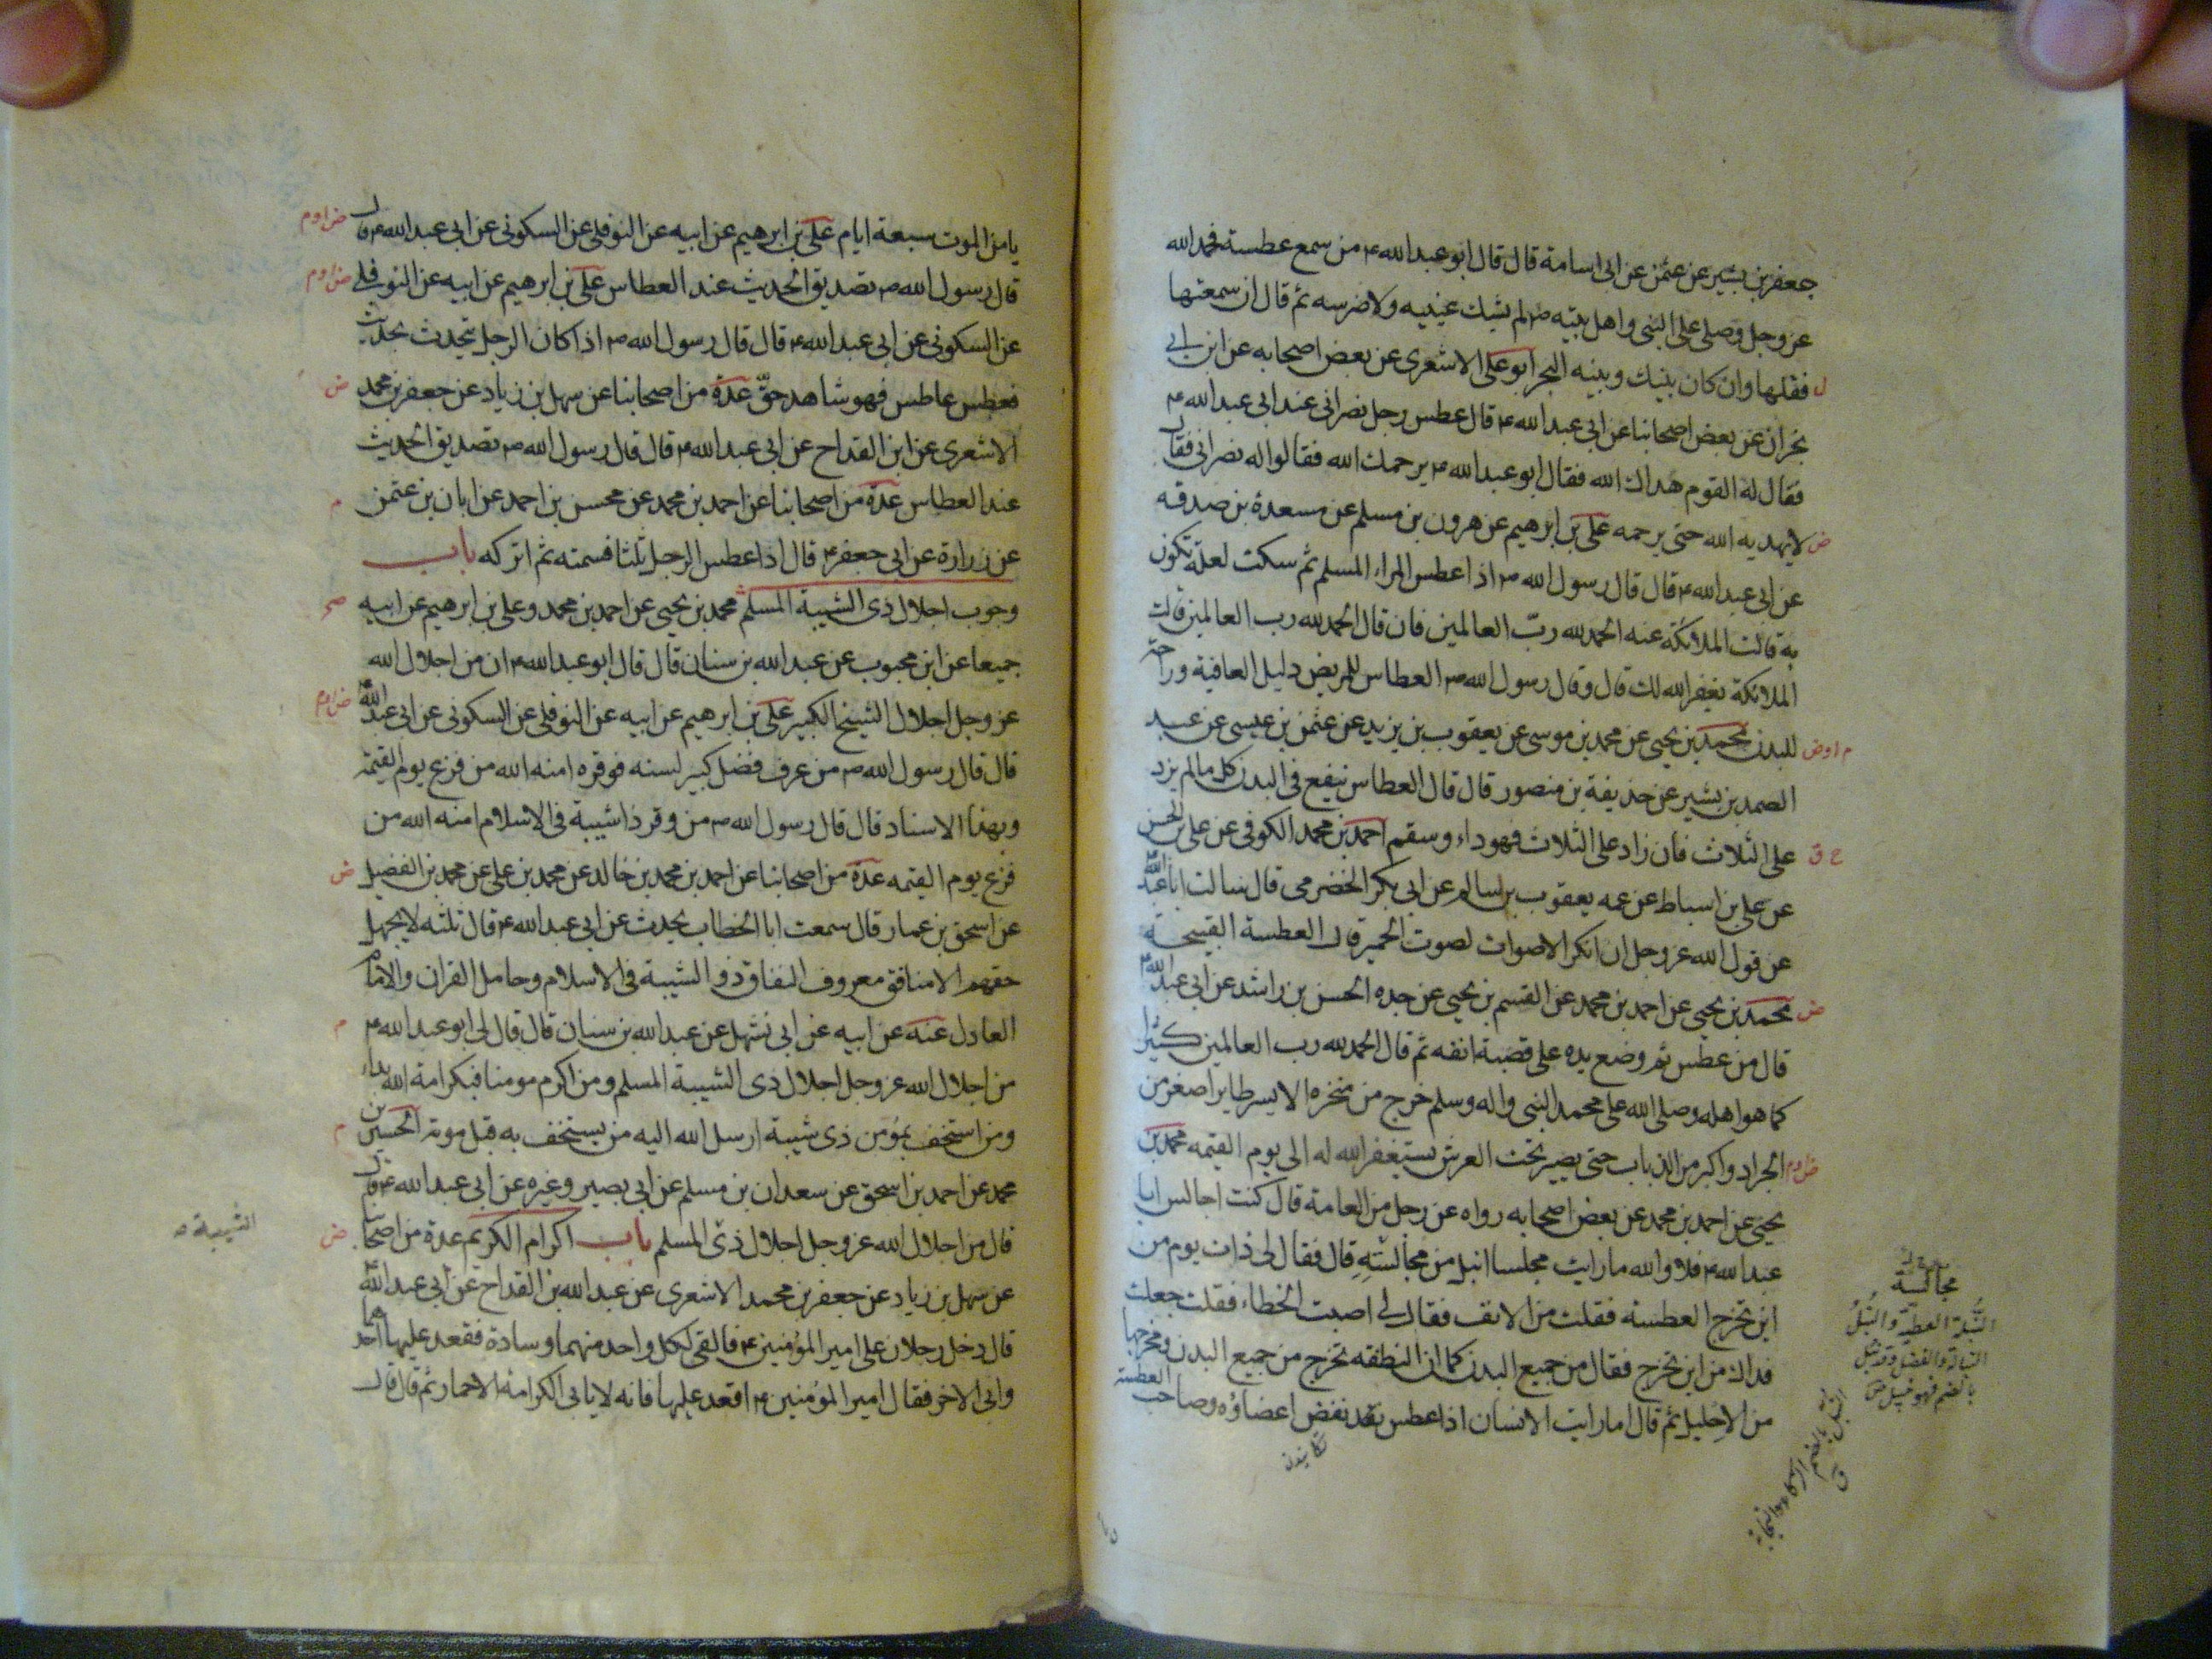 جعفر بن بشير عن عثمن عن ابى اسامة قال قال ابو عبد الله ع من سمع عطسة فحمد الله
عز وجل وصلى على النبى واهل بيته ص لم يشتك عينيه ولا ضرسه ثم قال ان سمعتها
فقلها وان كان بينك وبينه البحر ابو على الاشعرى عن بعض اصحابه عن ابن ابى
نجران عن بعض اصحابنا عن ابى عبد الله ع قال عطس رجل نصرانى عند ابى عبد الله ع
فقال له القوم هداك الله فقال ابو عبد الله ع يرحمك الله فقالوا له نصرانى فقال
لا يهديه الله حتى يرحمه على بن ابرهيم عن هرون بن مسلم عن مسعدة بن صدقه
عن ابى عبد الله ع قال قال رسول الله ص اذا عطس المراء المسلم ثم سكت لعلة تكون
به قالت الملائكة عنه الحمد لله رب العالمين فان قال الحمد لله رب العالمين قالت
الملائكة يغفر الله لك قال وقال رسول الله ص العطاس للمريض دليل العافية وراحة
للبدن محمد بن يحيى عن محمد بن موسى عن يعقوب بن يزيد عن عثمن بن عيسى عن عبد
الصمد بن بشير عن حذيفة بن منصور قال قال العطاس ينفع فى البدن كله ما لم يزد
على الثلاث فان زاد على الثلاث فهو داء وسقم احمد بن محمد الكوفى عن على بن الحسن
عن على بن اسباط عن عمه يعقوب بن سالم عن ابى بكر الحضرمى قال سالت ابا عبد الله ع
عن قول الله عز وجل ان انكر الاصوات لصوت الحمير قال العطسة القبيحة
محمد بن يحيى عن احمد بن محمد عن القسم بن يحيى عن جده الحسن بن راشد عن ابى عبد الله ع
قال من عطس ثم وضع يده على قصبة انفه ثم قال الحمد لله رب العالمين كثيرا
كما هو اهله وصلى الله على محمد النبى واله وسلم خرج من منخره الايسر طاير اصغر من
الجراد واكبر من الذباب حتى يصير تحت العرش يستغفر الله له الى يوم القيمه محمد بن
يحيى عن احمد بن محمد عن بعض اصحابه رواه عن رجل من العامة قال كنت اجالس ابا
عبد الله ع فلا والله ما رايت مجلسا انبل من مجالسته قال فقال لى ذات يوم من
اين تخرج العطسة فقلت من الانف فقال لى اصبت الخطاء فقلت جعلت
فداك من اين تخرج فقال من جميع البدن كما ان النطفه تخرج من جميع البدن ومخرجها
من الاحليل ثم قال اما رايت الانسان اذا عطس نفض اعضاؤه وصاحب العطسة
مجالسة
النبلة العطية والنبل
النبالة والفضل وقد نبل
بالضم فهو نبيل ص
يامن الموت سبعة ايام على بن ابرهيم عن ابيه عن النوفلى عن السكونى عن ابى عبد الله ع قال
قال رسول الله ص تصديق الحديث عند العطاس على بن ابرهيم عن ابيه عن النوفلى
عن السكونى عن ابى عبد الله ع قال قال رسول الله ص اذا كان الرجل يتحدث بحديث
فعطس عاطس فهو شاهد حق عدة من اصحابنا عن سهل بن زياد عن جعفر بن محمد
الاشعرى عن ابن القداح عن ابى عبد الله ع قال قال رسول الله ص تصديق الحديث
عند العطاس عدة من اصحابنا عن احمد بن محمد عن محسن بن احمد عن ابان بن عثمن
عن زرارة عن ابى جعفر ع قال اذا عطس الرجل ثلثا فسمته ثم اتركه باب
وجوب اجلال ذى الشيبة المسلم محمد بن يحيى عن احمد بن محمد وعلى بن ابرهيم عن ابيه
جميعا عن ابن محبوب عن عبد الله بن سنان قال قال ابو عبد الله ع ان من اجلال الله
عز وجل اجلال الشيخ الكبير على بن ابرهيم عن ابيه عن النوفلى عن السكونى عن ابى عبد الله ع
قال قال رسول الله ص من عرف فضل كبير لسنه فوقره امنه الله من فزع يوم القيمة
وبهذا الاسناد قال قال رسول الله ص من وقر ذا شيبة فى الاسلام امنه الله من
فزع يوم القيمه عدة من اصحابنا عن احمد بن محمد بن خالد عن محمد بن على عن محمد بن الفضيل
عن اسحق بن عمار قال سمعت ابا الخطاب يحدث عن ابى عبد الله ع قال ثلثه لا يجهل
حقهم الا منافق معروف النفاق ذو الشيبة فى الاسلام وحامل القران والامام
العادل عنه عن ابيه عن ابى نهشل عن عبد الله بن سنان قال قال لى ابو عبد الله ع
من اجلال الله عز وجل اجلال ذى الشيبة المسلم ومن اكرم مومنا فبكرامة الله بداء
ومن استخف بمؤمن ذى شيبة ارسل الله اليه من يستخف به قبل موته الحسين بن
محمد عن احمد بن اسحق عن سعدان بن مسلم عن ابى بصير وغيره عن ابى عبد الله ع قال
قال من اجلال الله عز وجل اجلال ذى المسلم باب اكرام الكريم عدة من اصحابنا
عن سهل بن زياد عن جعفر بن محمد الاشعرى عن عبد الله بن القداح عن ابى عبد الله ع
قال دخل رجلان على امير المؤمنين ع فالقى لكل واحد منهما وسادة فقعد عليها احدهما
وابى الاخر فقال امير المؤمنين ع اقعد عليها فانه لا يابى الكرامة الا حمار ثم قال قال
الشيبة ص